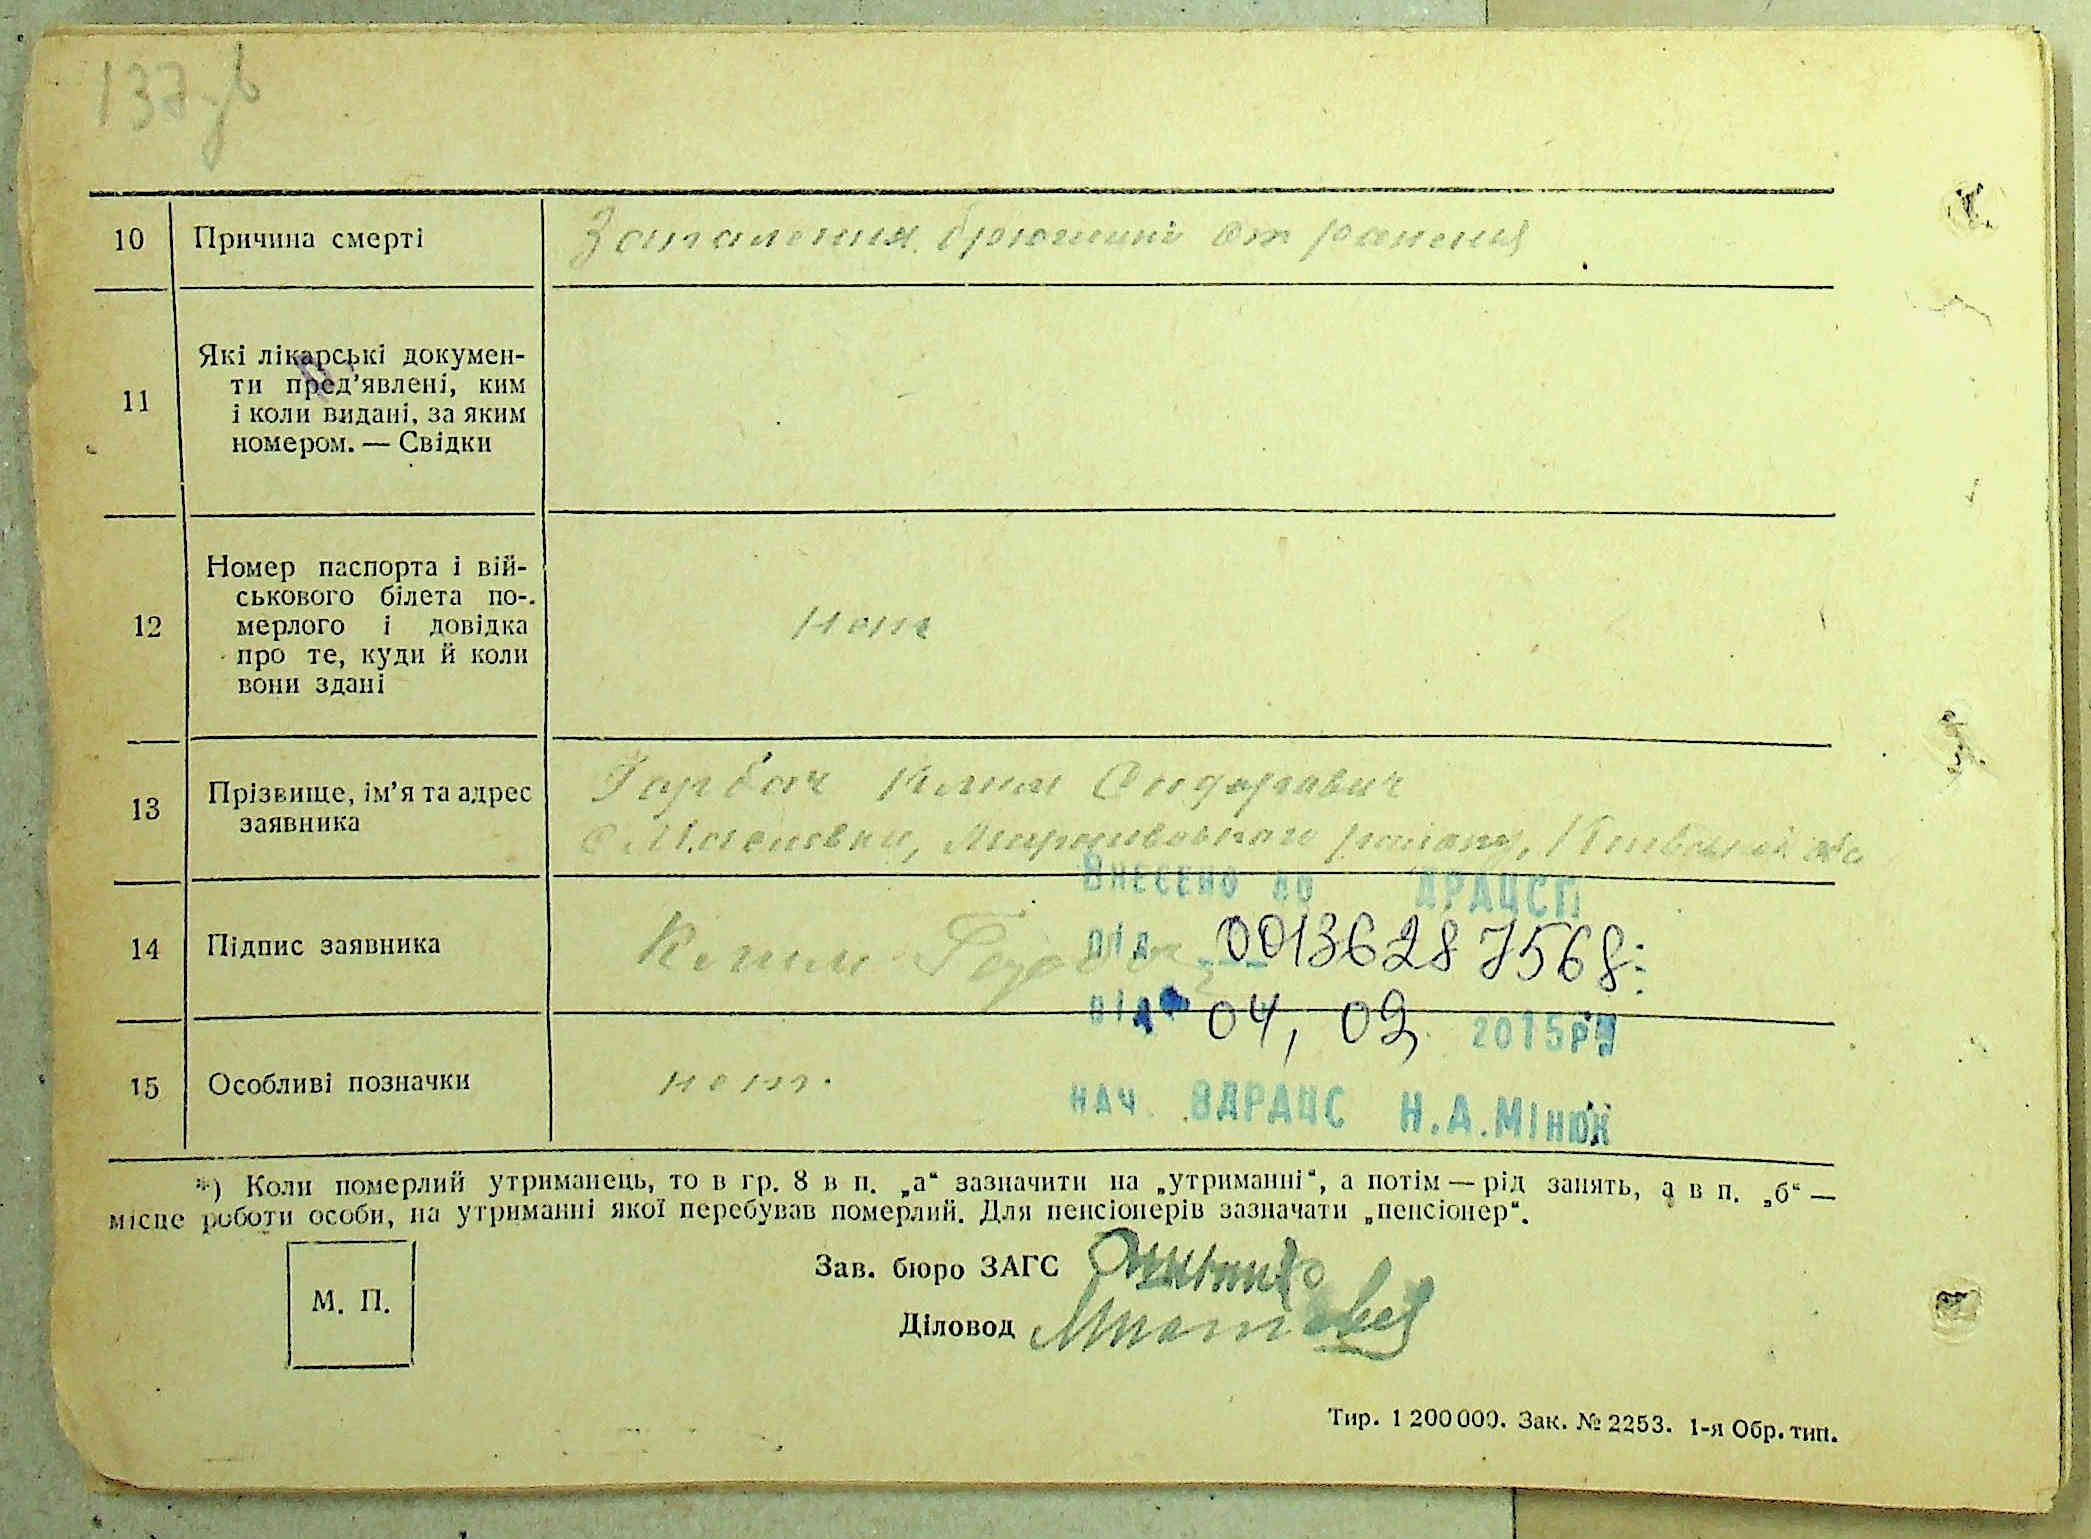 137зв
10 Причина смерті Запалення брюшини от ранения
11 Які лікарські докумен-
ти пред’явлені, ким
і коли видані, за яким
номером. — Свідки
12 Номер паспорта і вій-
ськового білета по-
мерлого і довідка
про те, куди й коли
вони здані
нет
13 Прізвище, ім’я та адрес
заявника
Горбач Клим Сидорович
с Масловки, Мироновского району, Київський обл
Внесено до ДРАЦСП
14 Підпис заявника Клим Горбач
під 00136287568
від 04, 02 2015р
15 Особливі позначки нет.
нач. ВДРАЦС Н.А.Мінюк
*) Коли померлий утриманець, то в гр. 8 в п. „а“ зазначити на „утриманні“, а потім — рід занять, а в п. „б“ —
місце роботи особи, на утриманні якої перебував померлий. Для пенсіонерів зазначати „пенсіонер“.
М. П.
Зав. бюро ЗАГС
Діловод
Тир. 1 200 000. Зак. № 2253. 1-я Обр. тип.